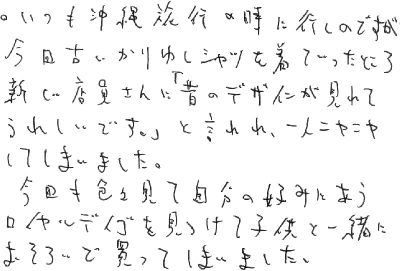 。いつも沖縄旅行の時に行くのですが
今回古いかりゆしシャツを着ていったところ
新しい店員さんに「昔のデザインが見れて
うれしいです。」と言われ、一人ニヤニヤ
してしまいました。
今回も色々見て自分の好みにあう
ロイヤルデイゴを見つけて子供と一緒に
おそろいで買ってしまいました。